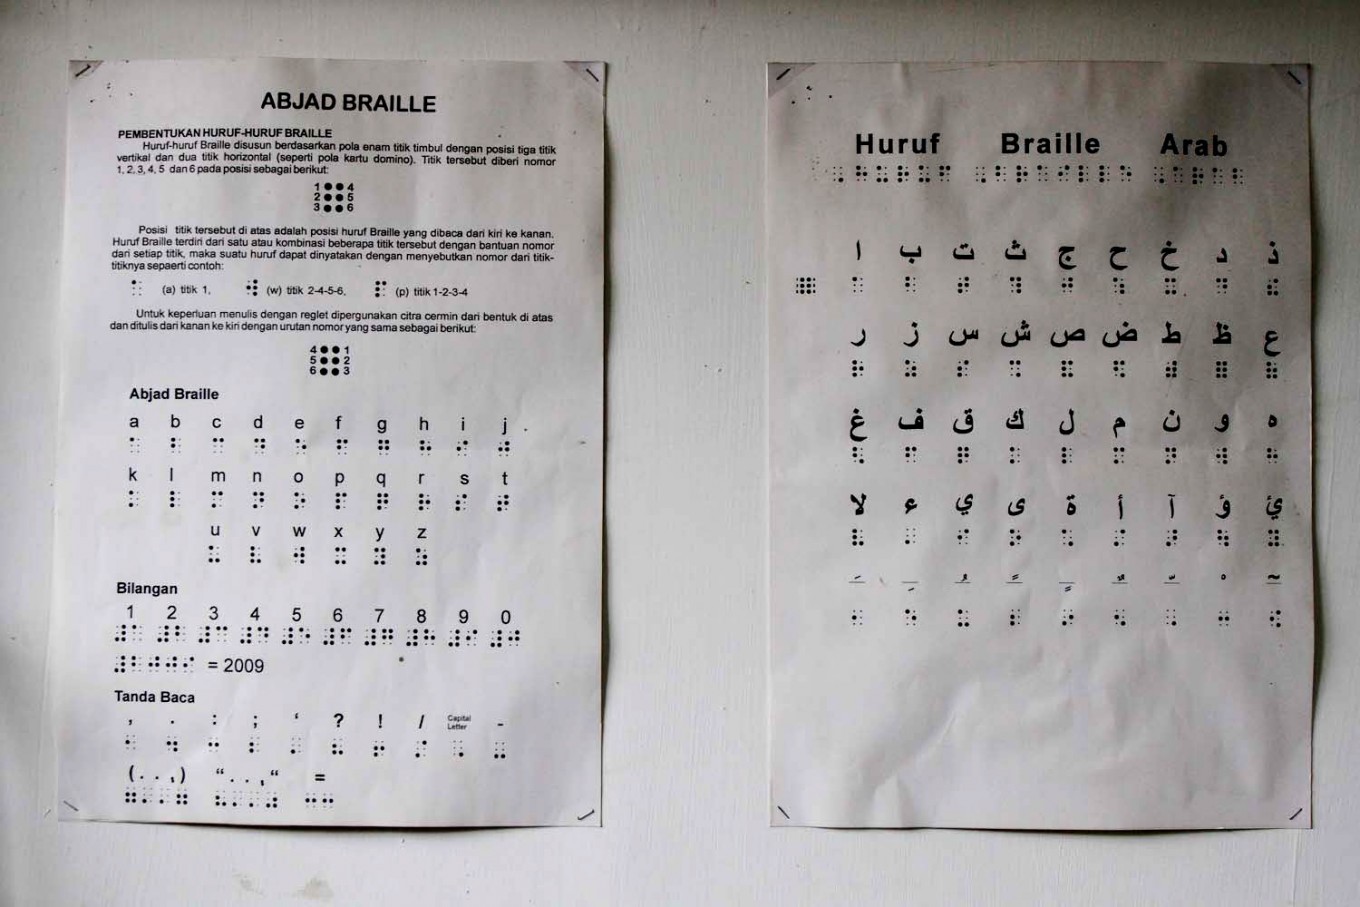 ABJAD BRAILLE
PEMBENTUKAN HURUF-HURUF BRAILLE
Huruf-huruf Braille disusun berdasarkan pola enam titik timbul dengan posisi tiga titik
vertikal dan dua titik horizontal (seperti pola kartu domino). Titik tersebut diberi nomor
1, 2, 3, 4, 5 dan 6 pada posisi sebagai berikut:
1 ●● 4
2 ●● 5
3 ●● 6
Posisi titik tersebut di atas adalah posisi huruf Braille yang dibaca dari kiri ke kanan.
Huruf Braille terdiri dari satu atau kombinasi beberapa titik tersebut dengan bantuan nomor
dari setiap titik, maka suatu huruf dapat dinyatakan dengan menyebutkan nomor dari titik-
titiknya sepaerti contoh:
(a) titik 1, (w) titik 2-4-5-6, (p) titik 1-2-3-4
Untuk keperluan menulis dengan reglet dipergunakan citra cermin dari bentuk di atas
dan ditulis dari kanan ke kiri dengan urutan nomor yang sama sebagai berikut:
4 ●● 1
5 ●● 2
6 ●● 3
Abjad Braille
a b c d e f g h i j
k l m n o p q r s t
u v w x y z
Bilangan
1 2 3 4 5 6 7 8 9 0
= 2009
Tanda Baca
, . : ; ‘ ? ! / Capital Letter -
(. . ,) “. . ,“ =
Huruf Braille Arab
ا ب ت ث ج ح خ د ذ
ر ز س ش ص ض ط ظ ع
غ ف ق ك ل م ن و ه
لا ء ي ى ة أ آ ؤ ئ